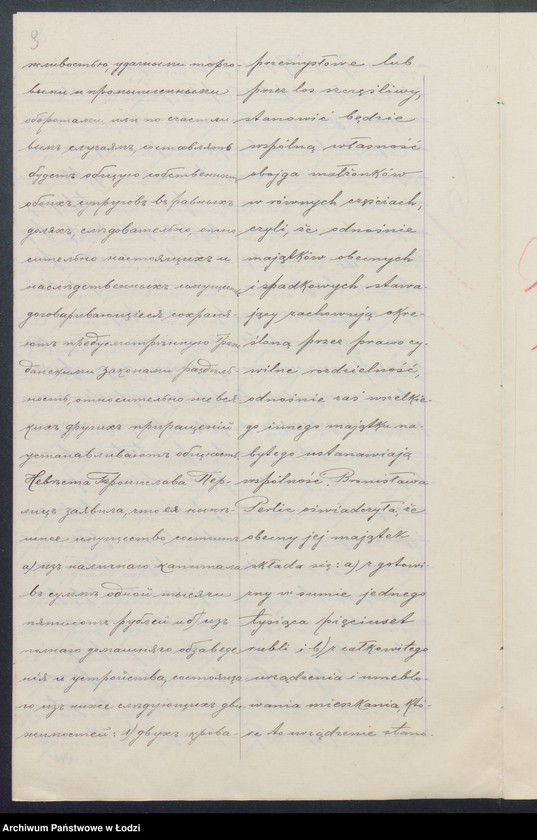 9
жливостью, удачными торго-
выми и промышленными
оборотами, или по счастли
вымъ случаямъ, составлять
будетъ общую собственность
обоихъ супруговъ въ равныхъ
доляхъ, слѣдовательно, отно
сительно настоящихъ и
наслѣдственныхъ имуществъ
договаривающіеся, сохраня-
ютъ предусмотрѣнную Граж
данскими законами раздѣль
ность, относительно же вся
кихъ другихъ приращеній
устанавливаютъ общность
Невѣста Бронислава Пер-
лицъ заявила, что ея нынѣ-
шнее имущество состоитъ
а) изъ наличнаго капитала
въ суммѣ одной тысячи
пятисотъ рублей и б) изъ
полнаго домашняго обзаведе
нія и устройства, состояща
го изъ ниже слѣдующихъ дви
жимостей: 1) двухъ крова-
przemysłowe lub
przez los szczęśliwy,
stanowić będzie
wspólną własność
obojga małżonków
w równych częściach,
czyli, że odnośnie
majątków obecnych
i spadkowych stawa-
jący zachowują okre-
śloną przez prawo cy-
wilne rozdzielność,
odnośnie zaś wszelkie-
go innego majątku na-
bytego ustanawiają
wspólność. Bronisława
Perlic oświadczyła, że
obecny jej majątek
składa się: a) z gotowi-
zny w sumie jednego
tysiąca pięciuset
rubli i b) z całkowitego
urządzenia i umeblo-
wania mieszkania, któ-
re to urządzenie stano-
Archiwum Państwowe w Łodzi